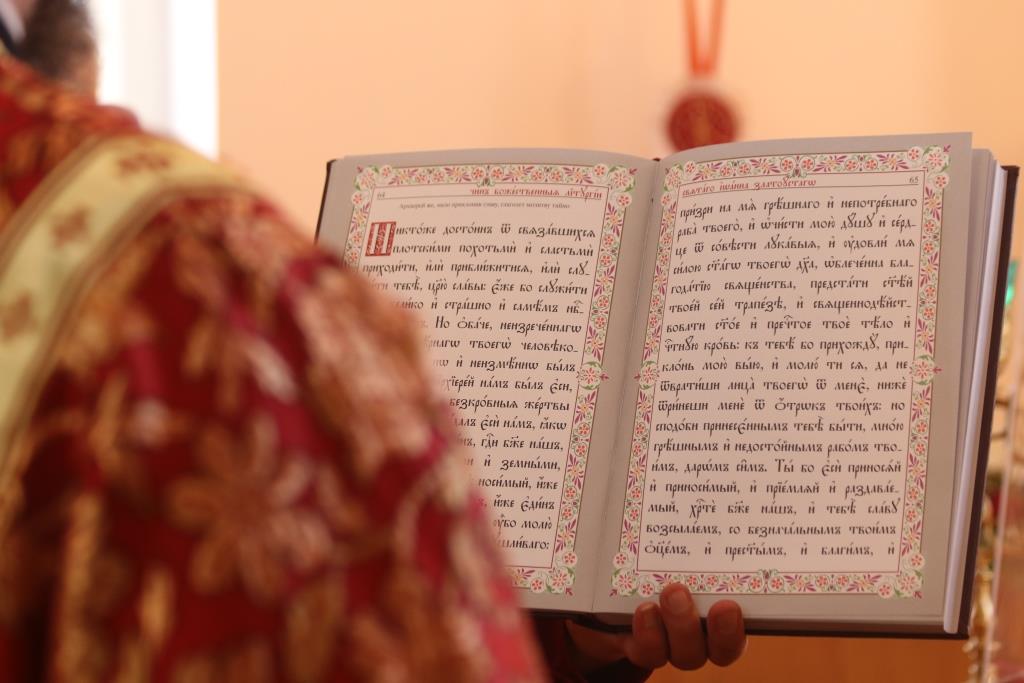 64
чинъ божественныя літꙋргі́и
Архиерей же, мало приклонив главу, глаголет молитву тайно:
Никто́же досто́инъ ѿ свѧза́вшихсѧ
плотски́ми похотьмѝ и҆ сластьмѝ
приходи́ти, и҆лѝ прибли́житисѧ, и҆лѝ слꙋ_
ти тебѣ̀, цр҃ю̀ сла́вы: є҆́же бо слꙋжи́ти
и҆ стра́шно и҆ самѣ̑мъ нбⷭ҇_
Но ѻ҆ба́че, неизрече́ннагѡ
твоегѡ̀ человѣко_
и҆ неизмѣ́ннѡ бы́лъ
а҆рхїере́й на́мъ бы́лъ є҆сѝ,
безкро́вныѧ же́ртвы
є҆сѝ на́мъ, ꙗ҆́кѡ
гдⷭ҇и бж҃е на́шъ,
и҆ земны́ми,
носи́мый, и҆́же
и҆́же є҆ди́нъ
ᲂу҆̀бо молю̀
65
свѧта́гѡ і҆ѡа́нна златоꙋ́стагѡ
при́зри на мѧ̀ грѣ́шнаго и҆ непотре́бнаго
раба̀ твоего̀, и҆ ѡ҆чи́сти мою̀ дꙋ́шꙋ и҆ се́рд_
це ѿ со́вѣсти лꙋка́выѧ, и҆ ᲂу҆довли́ мѧ
си́лою ст҃а́гѡ твоегѡ̀ дх҃а, ѡ҆блече́нна бла_
года́тїю свѧще́нства, предста́ти ст҃ѣ́й
твое́й се́й трапе́зѣ, и҆ свѧщеннодѣ́йст_
вовати ст҃о́е и҆ пречⷭ҇тое твоѐ тѣ́ло и҆
чⷭ҇тнꙋ́ю кро́вь: къ тебѣ́ бо прихождꙋ̀, при_
кло́нь мою̀ вы́ю, и҆ молю́ ти сѧ, да не
ѿврати́ши лица̀ твоегѡ̀ ѿ менє̀, нижѐ
ѿри́неши менѐ ѿ ѻ҆́трѡкъ твои́хъ: но
сподо́би принесє́ннымъ тебѣ̀ бы́ти, мно́ю
грѣ́шнымъ и҆ недосто́йнымъ рабо́мъ тво_
и́мъ, дарѡ́мъ си̑мъ. Ты́ бо є҆сѝ приносѧ́й
и҆ приноси́мый, и҆ прїе́млѧй и҆ раздава́е_
мый, хрⷭ҇тѐ бж҃е на́шъ, и҆ тебѣ̀ сла́вꙋ
возсыла́емъ, со безнача́льнымъ твои́мъ
ѻ҆ц҃е́мъ, и҆ прест҃ы́мъ, и҆ благи́мъ, и҆